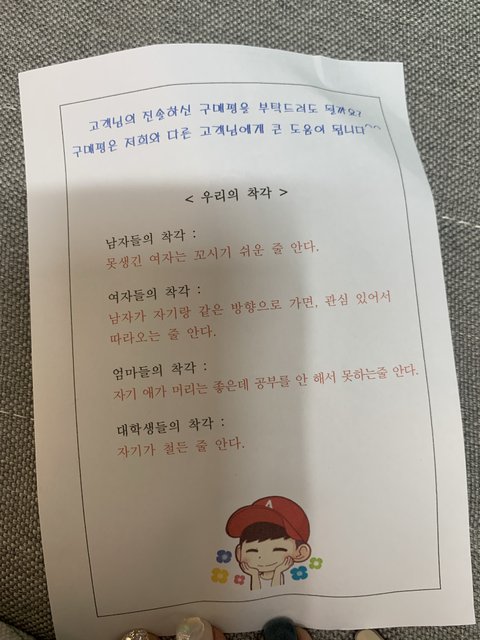 고객님의 진솔하신 구매평을 부탁드려도 될까요?
구매평은 저희와 다른 고객님에게 큰 도움이 됩니다^^
< 우리의 착각 >
남자들의 착각 :
못생긴 여자는 꼬시기 쉬운 줄 안다.
여자들의 착각 :
남자가 자기랑 같은 방향으로 가면, 관심 있어서
따라오는 줄 안다.
엄마들의 착각 :
자기 애가 머리는 좋은데 공부를 안 해서 못하는줄 안다.
대학생들의 착각 :
자기가 철든 줄 안다.
A